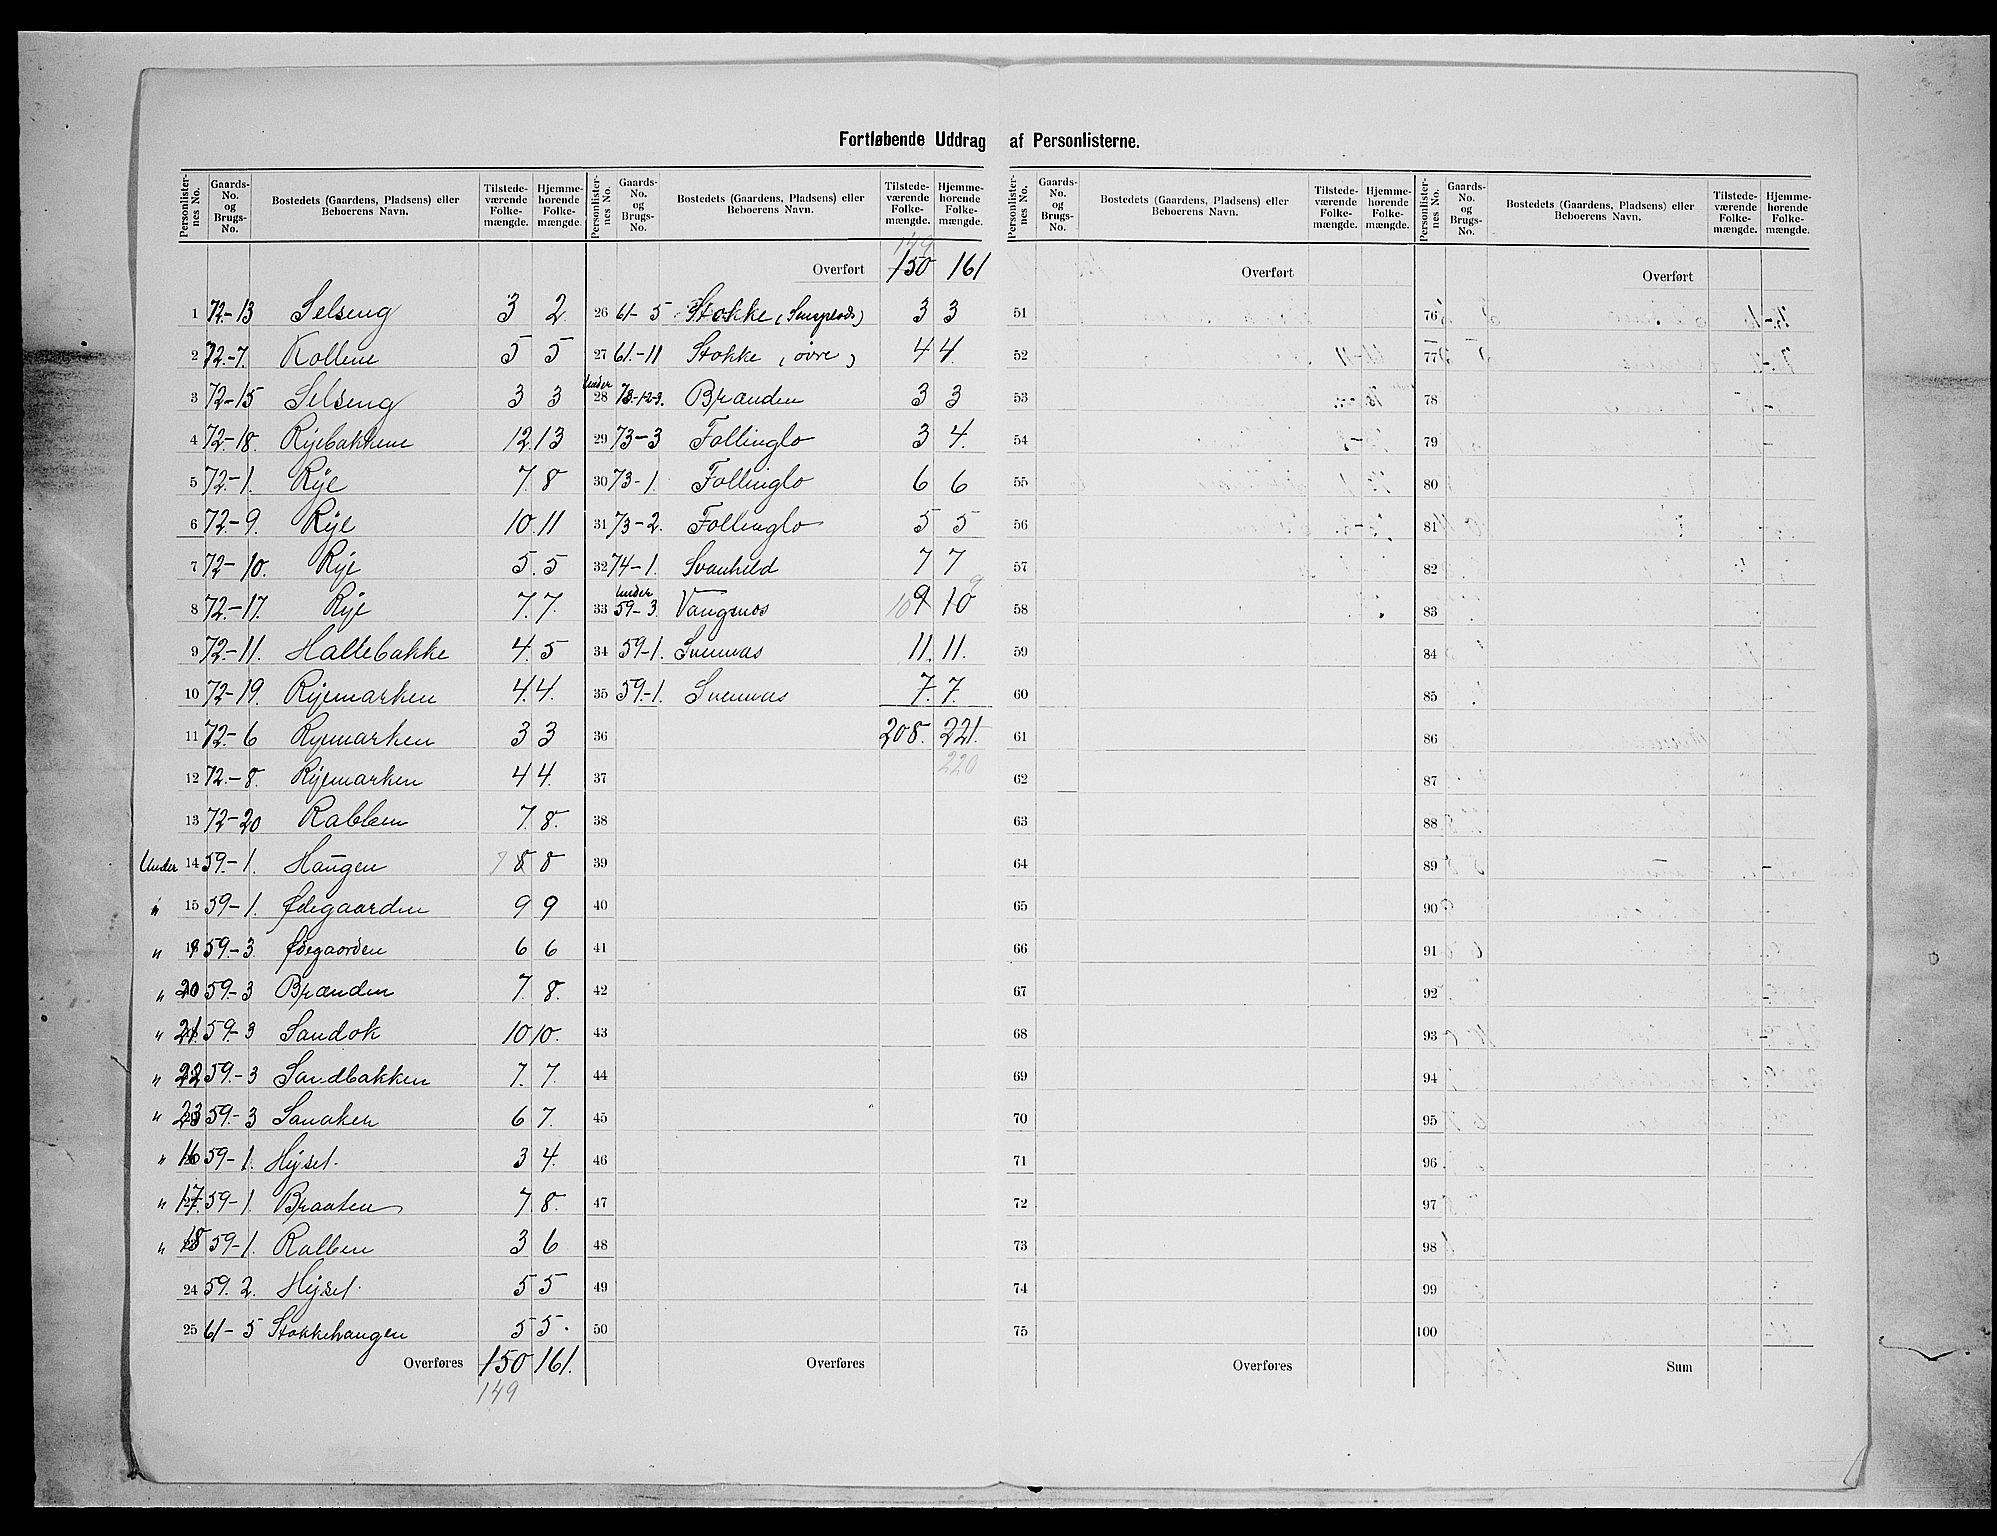 Fortløbende Uddrag af Personlisterne.
Personlisternes No. Gaards-No. og Brugs-No. Bostedets (Gaardens, Pladsens) eller Beboerens Navn. Tilstedeværende Folkemængde. Hjemmehørende Folkemængde.
1 72-13 Selseng 3 2
2 72-7. Kollene 5 5
3 72-15 Selseng 3 3
4 72-18. Ryebakkene 12 13
5 72-1. Rye 7. 8
6 72-9. Rye 10. 11
7 72-10. Rye 5. 5
8 72-17. Rye 7. 7.
9 72-11. Hallebakke 4. 5
10 72-19. Ryemarken 4. 4.
11 72-6 Ryemarken 3 3
12 72-8. Ryemarken 4 4.
13 72-20 Rabben 7. 8.
Under 14 59-1. Haugen 7 8 8
" 15 59-1. Ødegaarden 9 9
" 19 59-3 Ødegaarden 6 6
" 20 59-3 Brænden 7. 8.
" 21. 59-3 Sandok 10 10.
" 22 59-3 Sandbakken 7. 7.
" 23 59-3 Sanaken 6 7.
" 16 59-1. Hyset. 3 4.
" 17. 59-1. Braaten 7 8.
" 18 59-1. Rabben 3 6
24 59. 2. Hyset. 5 5
25 61-5 Stokkehaugen 5 5.
Overføres 150 161.
149
Personlisternes No. Gaards-No. og Brugs-No. Bostedets (Gaardens, Pladsens) eller Beboerens Navn. Tilstedeværende Folkemængde. Hjemmehørende Folkemængde.
149
Overført 150 161
26 61-5 Stokke 3 3
27 61-11 Stokke (øvre) 4 4.
Under
28 73-1-2-3. Brænden 3 3
29 73-3 Follinglo 3 4.
30 73-1. Follinglo 6 6
31 73-2. Follinglo 5 5
32 74-1. Svanhild 7 7
Under 9
33 59-3. Vangsnos 10 9 10
34 59-1. Svennas 11. 11.
35 59-1. Svennas 7. 7.
36 208. 221.
37 220
38
39
40
41
42
43
44
45
46
47
48
49
50
Overføres
Personlisternes No. Gaards-No. og Brugs-No. Bostedets (Gaardens, Pladsens) eller Beboerens Navn. Tilstedeværende Folkemængde. Hjemmehørende Folkemængde.
Overført
51
52
53
54
55
56
57
58
59
60
61
62
63
64
65
66
67
68
69
70
71
72
73
74
75
Overføres
Personlisternes No. Gaards-No. og Brugs-No. Bostedets (Gaardens, Pladsens) eller Beboerens Navn. Tilstedeværende Folkemængde. Hjemmehørende Folkemængde.
Overført
76
77
78
79
80
81
82
83
84
85
86
87
88
89
90
91
92
93
94
95
96
97
98
99
100
Sum